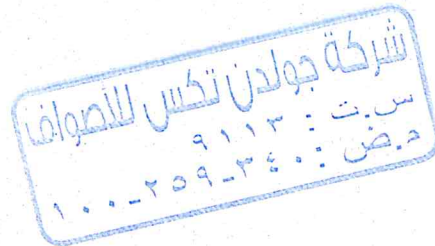 شركة جولدن تكس للأصواف
س.ت : ٩١١٣
م.ض : ٣٤٠-٢٥٩-١٠٠